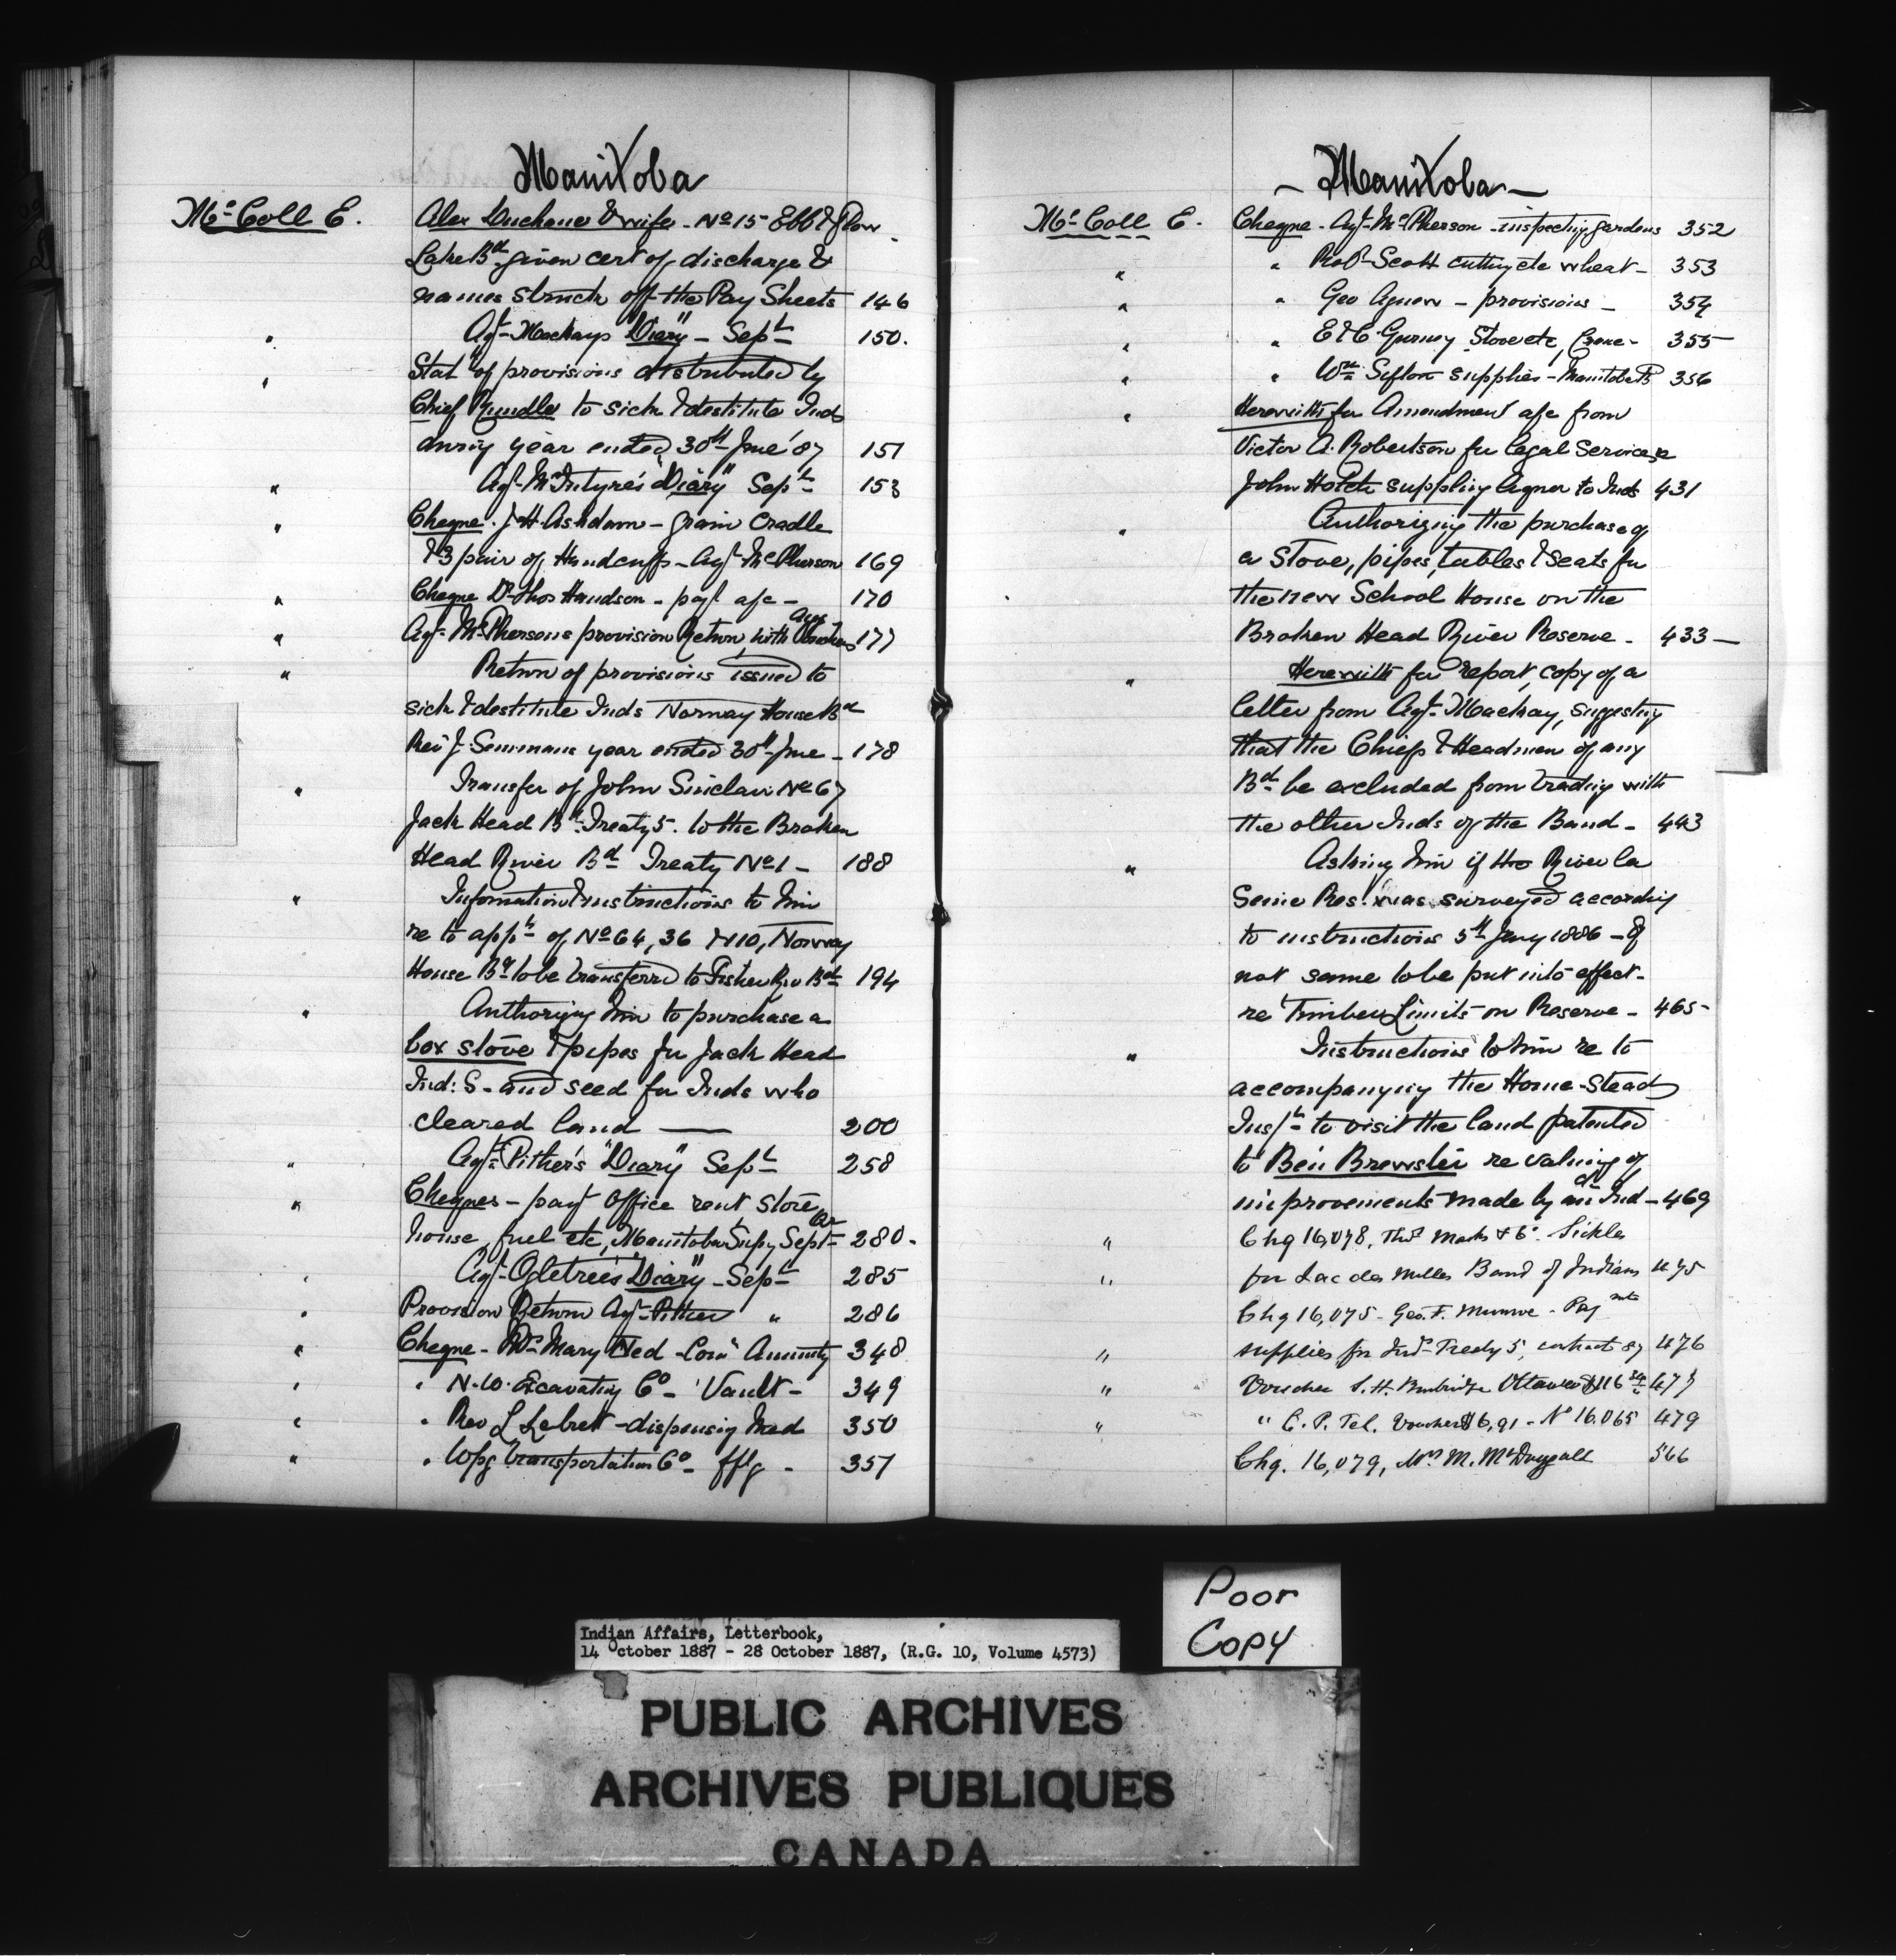 Manitoba
McColl E. Alex Duchene & wife - No 15 Ebb & Flow
Lake Bd given cert of discharge &
names struck off the Pay Sheets 146
" Agt Mackays "Diary" - Sept 150.
" Stat of provisions distributed by
Chief Rundle to sick & destitute Inds
during year ended 30th June '87 151
" Agt McIntyre's "Diary" Sept 153
" Cheque. J. H. Ashdown - grain Cradle
& 3 pair of Handcuffs - Agt McPherson 169
" Cheque Dr Thos Hanson - payt a/c - 170
" Agt McPhersons provision Return with Vouchers Aug 177
" Return of provisions issued to
sick & destitute Inds Norway House Bd
Rev J. Semmens year ended 30th June - 178
" Transfer of John Sinclair No 67
Jack Head Bd Treaty 5. to the Broken
Head River Bd Treaty No 1 - 188
" Information & instructions to him
re to appn of No 64, 36 & 110, Norway
House Bd to be transferred to Fisher Riv Bd 194
" Authorizing him to purchase a
box stove & pipes for Jack Head
Ind: S - and seed for Inds who
cleared land — 200
" Agt Pither's "Diary" Sept 258
" Cheques - payt office rent store
house, fuel etc, Manitoba Supy Sept 280.
" Agt Ogletree's "Diary" - Sept 285
" Provision Return Agt Pither " 286
" Cheque - Mrs Mary Ned - Com Annuity 348
" " N. W. Excavating Co - Vault - 349
" " Rev L Lebret - dispensing Med 350
" " Wpg Transportation Co - 351
- Manitoba -
McColl E. Cheque - Agt McPherson - inspecting gardens 352
" " Robt Scott cutting etc wheat - 353
" " Geo Agnew - provisions - 354
" " E & C Gurney Stove etc, 355
" " Wm Sifton supplies - Manitoba 356
" Herewith for Amendment a/c from
Victor A. Robertson for legal Services re
John Hotch supplying liquor to Inds 431
" Authorizing the purchase of
a stove, pipes, tables & seats for
the new School House on the
Broken Head River Reserve - 433 -
" Herewith for report, copy of a
letter from Agt Mackay, suggesting
that the Chiefs & Headmen of any
Bd be excluded from trading with
the other Inds of the Band - 443
" Asking him if the River la
Seine Res. was surveyed according
to instructions 5th Jany 1886 - If
not same to be put into effect -
re Timber Limits on Reserve - 465 -
" Instructions to him re to
accompanying the Home-stead
Inspr to visit the land patented
to Ben Brewster re valuing of
improvements made by an Ind - 469
" Chq 16,078, Thos Marks & Co. Sickles
" for Lac des Milles Band of Indians 475
Chq 16,075 - Geo. F. Munroe - Paymts
" supplies for Inds Treaty 5, contract 87 476
" Voucher S. H. Burbridge Ottawa $116 477
" " C. P. Tel. Voucher $6,91 - No 16,065 479
Chq. 16,079, Mrs M. McDougall 566
Poor
Copy
Indian Affairs, Letterbook,
14 October 1887 - 28 October 1887, (R.G. 10, Volume 4573)
PUBLIC ARCHIVES
ARCHIVES PUBLIQUES
CANADA